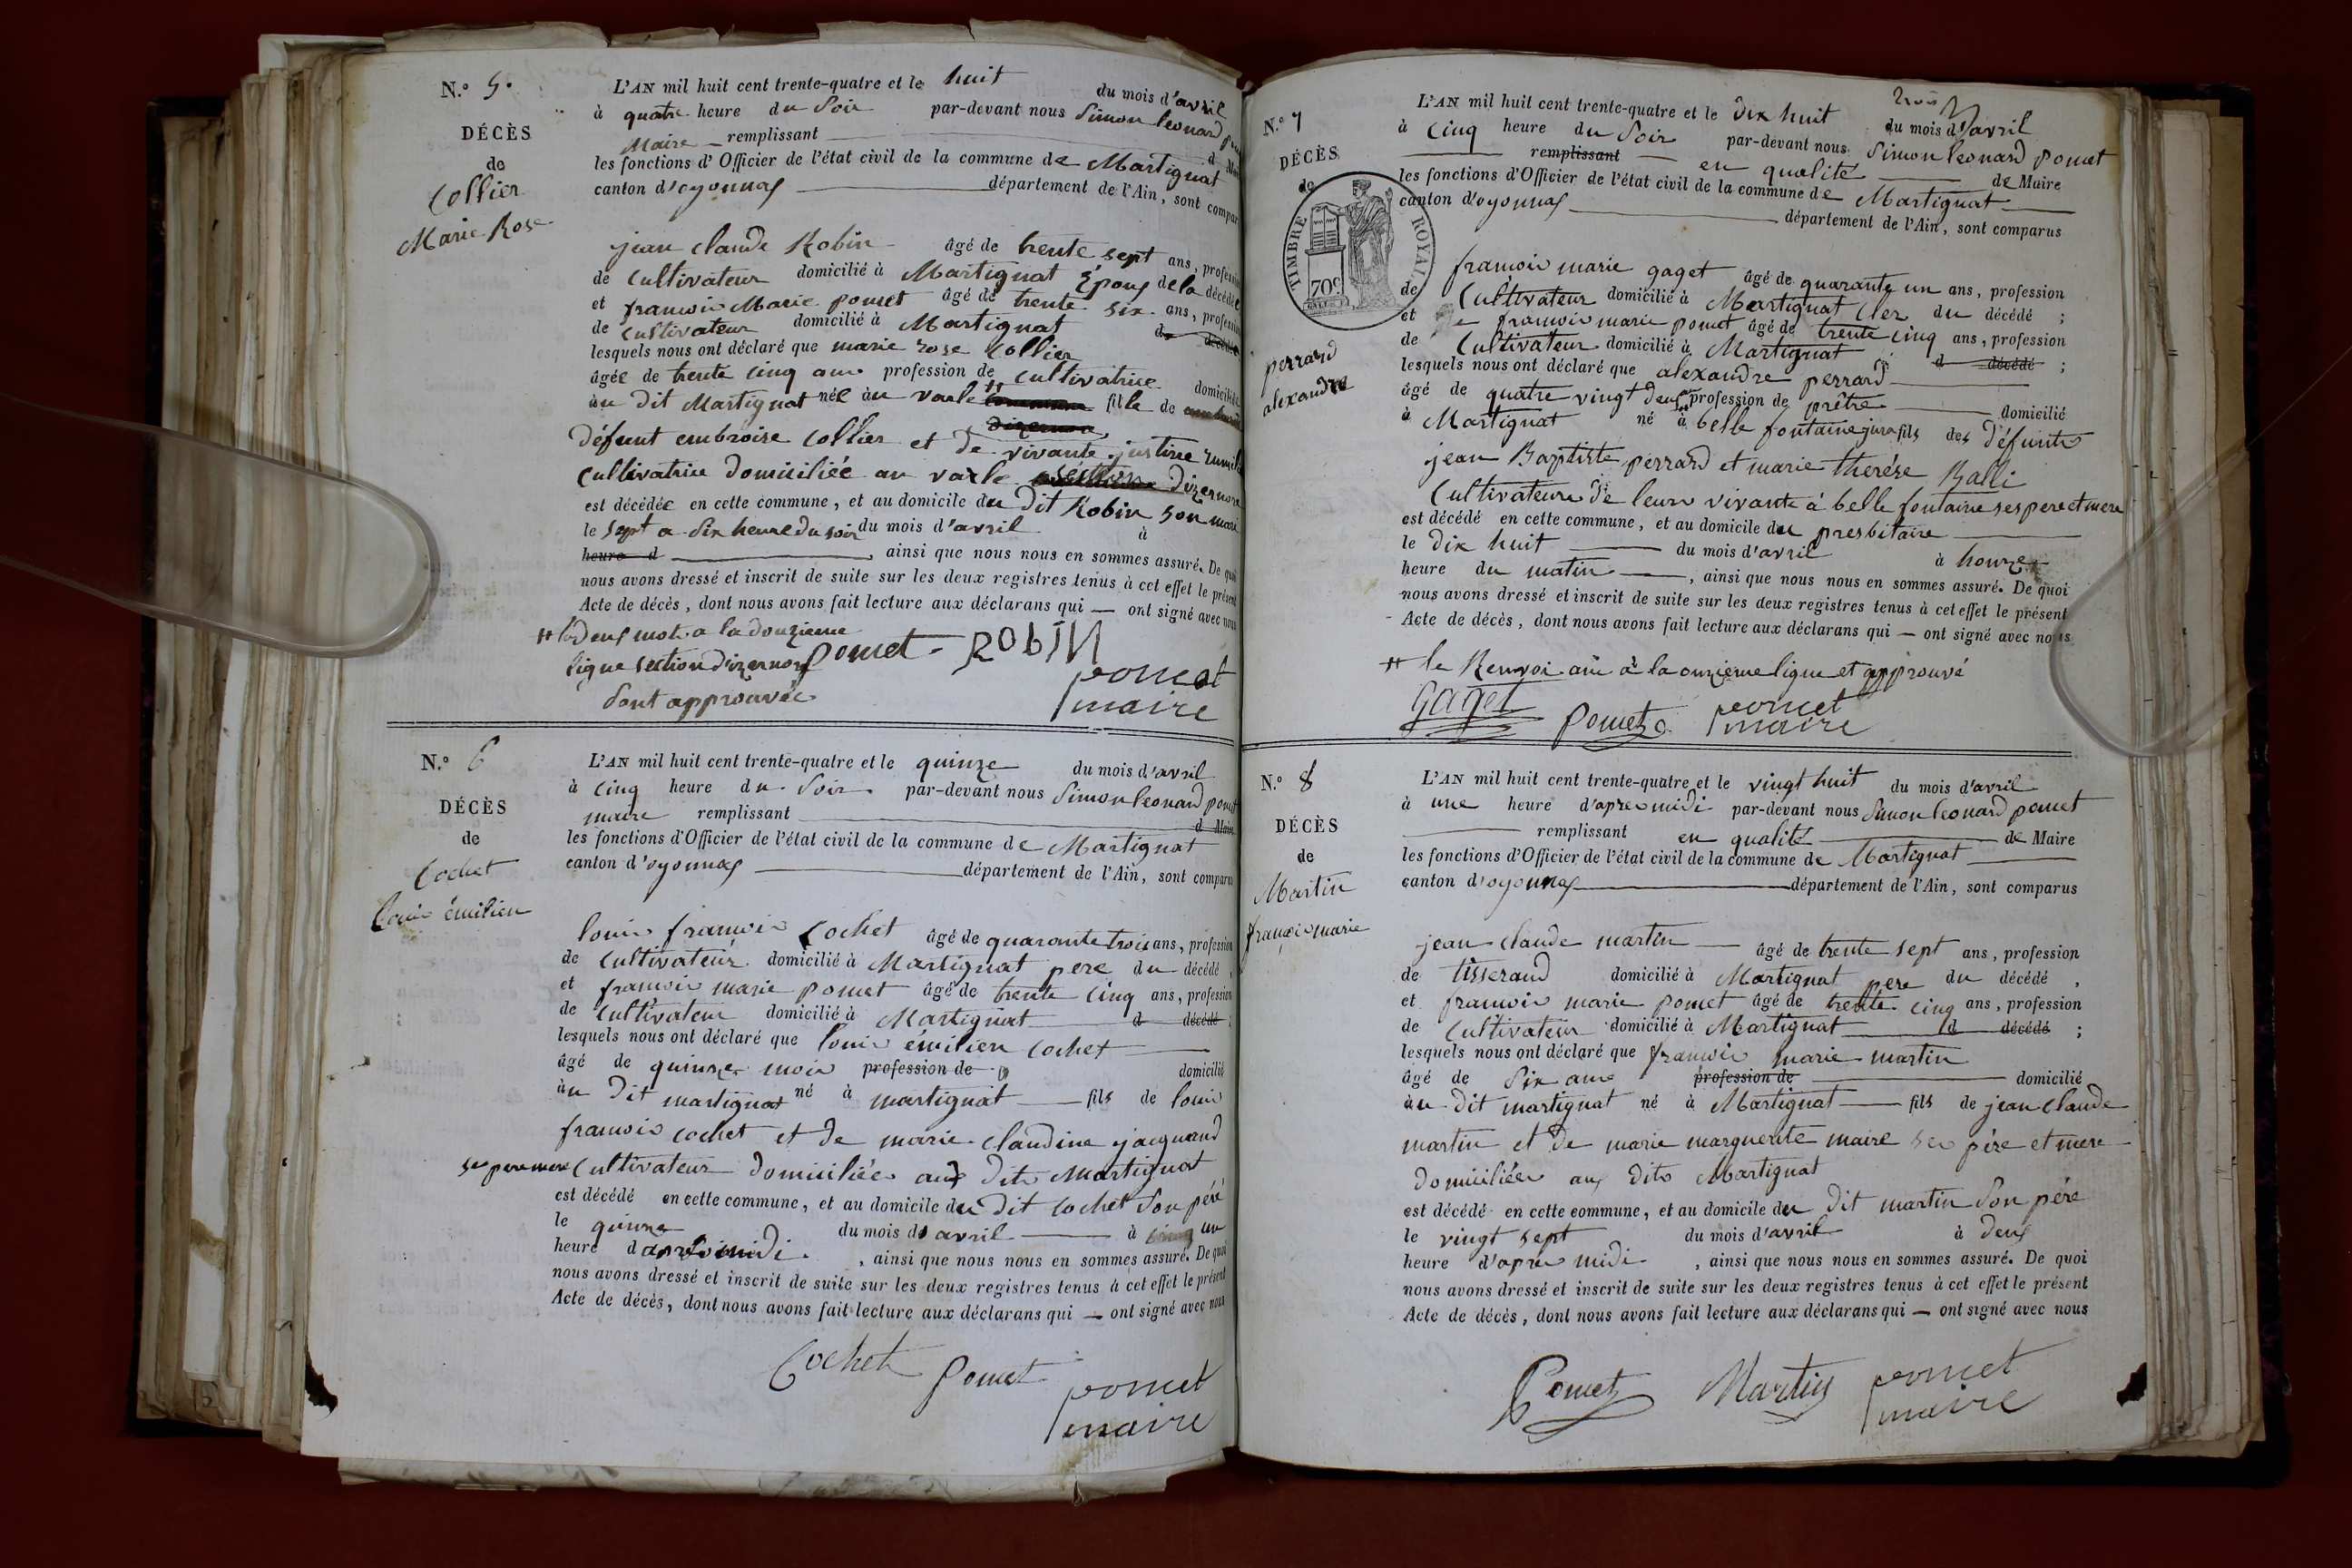 N.° 5.
DÉCÈS
de
Collier
Marie Rose
L'AN mil huit cent trente-quatre et le huit du mois d'avril
à quatre heure du Soir par-devant nous Simon leonard
Maire remplissant d
les fonctions d'Officier de l'état civil de la commune de Martignat
canton d'oyonnax département de l'Ain, sont compar
jean claude Robin âgé de trente sept ans, profession
de Cultivateur domicilié à Martignat Epoux de la décédée
et francois Marie pomet âgé de trente six ans, profession
de Cultivateur domicilié à Martignat d décédé
lesquels nous ont déclaré que marie rose Collier
âgée de trente cinq ans profession de Cultivatrice domiciliée
au dit Martignat née au voarle fille de
défunt embroise Collier et de vivante justine
Cultivatrice domiciliée au voarle section dizernore
est décédée en cette commune, et au domicile du dit Robin son mari
le sept a six heure du soir du mois d'avril à
heure d , ainsi que nous nous en sommes assuré. De quoi
nous avons dressé et inscrit de suite sur les deux registres tenus à cet effet le présent
Acte de décès, dont nous avons fait lecture aux déclarans qui — ont signé avec nous
les deux mots a la douzieme
ligne section d'izernore
sont approuvée
pomet ROBIN
pomet
maire
N.° 6
DÉCÈS
de
Cochet
Louis émilien
L'AN mil huit cent trente-quatre et le quinze du mois d'avril
à cinq heure du Soir par-devant nous Simon leonard pomet
maire remplissant d Maire
les fonctions d'Officier de l'état civil de la commune de Martignat
canton d'oyonnax département de l'Ain, sont comparus
louis francois Cochet âgé de quarante trois ans, profession
de Cultivateur domicilié à Martignat pere du décédé
et francois marie pomet âgé de trente cinq ans, profession
de Cultivateur domicilié à Martignat d décédé
lesquels nous ont déclaré que louis emilien Cochet
âgé de quinze mois profession de domicilié
au dit martignat né à martignat fils de louis
francois cochet et de marie claudine jacquand
ses pere mere Cultivateur domiciliées aux dits Martignat
est décédé en cette commune, et au domicile du dit Cochet Son pére
le quinze du mois d'avril à un
heure d'apres midi , ainsi que nous nous en sommes assuré. De quoi
nous avons dressé et inscrit de suite sur les deux registres tenus à cet effet le présent
Acte de décès, dont nous avons fait lecture aux déclarans qui — ont signé avec nous
Cochet pomet pomet
maire
N.° 7
DÉCÈS
de
TIMBRE ROYAL
70 c
perrard
alexandre
L'AN mil huit cent trente-quatre et le dix huit du mois d'avril
à Cinq heure du Soir par-devant nous Simon leonard pomet
remplissant en qualité de Maire
les fonctions d'Officier de l'état civil de la commune de Martignat
canton d'oyonnax département de l'Ain, sont comparus
francois marie gaget âgé de quarante un ans, profession
de Cultivateur domicilié à Martignat Cler du décédé ;
et francois marie pomet âgé de trente cinq ans, profession
de Cultivateur domicilié à Martignat d décédé ;
lesquels nous ont déclaré que alexandre perrard
âgé de quatre vingt deux profession de prêtre domicilié
à Martignat né à belle fontaine jura fils des défunts
jean Baptiste perrard et marie therése Balli
Cultivateurs de leurs vivants à belle fontaine ses pere et mere
est décédé en cette commune, et au domicile du presbitaire
le dix huit du mois d'avril à honze
heure du matin , ainsi que nous nous en sommes assuré. De quoi
nous avons dressé et inscrit de suite sur les deux registres tenus à cet effet le présent
Acte de décès, dont nous avons fait lecture aux déclarans qui — ont signé avec nous
le Renvoi à la onzieme ligne et approuvé
Gaget pomet pomet
maire
N.° 8
DÉCÈS
de
Martin
françois marie
L'AN mil huit cent trente-quatre et le vingt huit du mois d'avril
à une heure d'apres midi par-devant nous Simon leonard pomet
remplissant en qualité de Maire
les fonctions d'Officier de l'état civil de la commune de Martignat
canton d'oyonnax département de l'Ain, sont comparus
jean claude martin âgé de trente sept ans, profession
de tisserand domicilié à Martignat pere du décédé ,
et francois marie pomet âgé de trente cinq ans, profession
de Cultivateur domicilié à Martignat d décédé ;
lesquels nous ont déclaré que francois marie martin
âgé de six ans profession de domicilié
au dit martignat né à Martignat fils de jean claude
martin et de marie marguerite maire ses pére et mere
domiciliées aux dits Martignat
est décédé en cette commune, et au domicile du dit martin Son pére
le vingt sept du mois d'avril à deux
heure d'apres midi , ainsi que nous nous en sommes assuré. De quoi
nous avons dressé et inscrit de suite sur les deux registres tenus à cet effet le présent
Acte de décès, dont nous avons fait lecture aux déclarans qui — ont signé avec nous
Pomet Martin pomet
maire